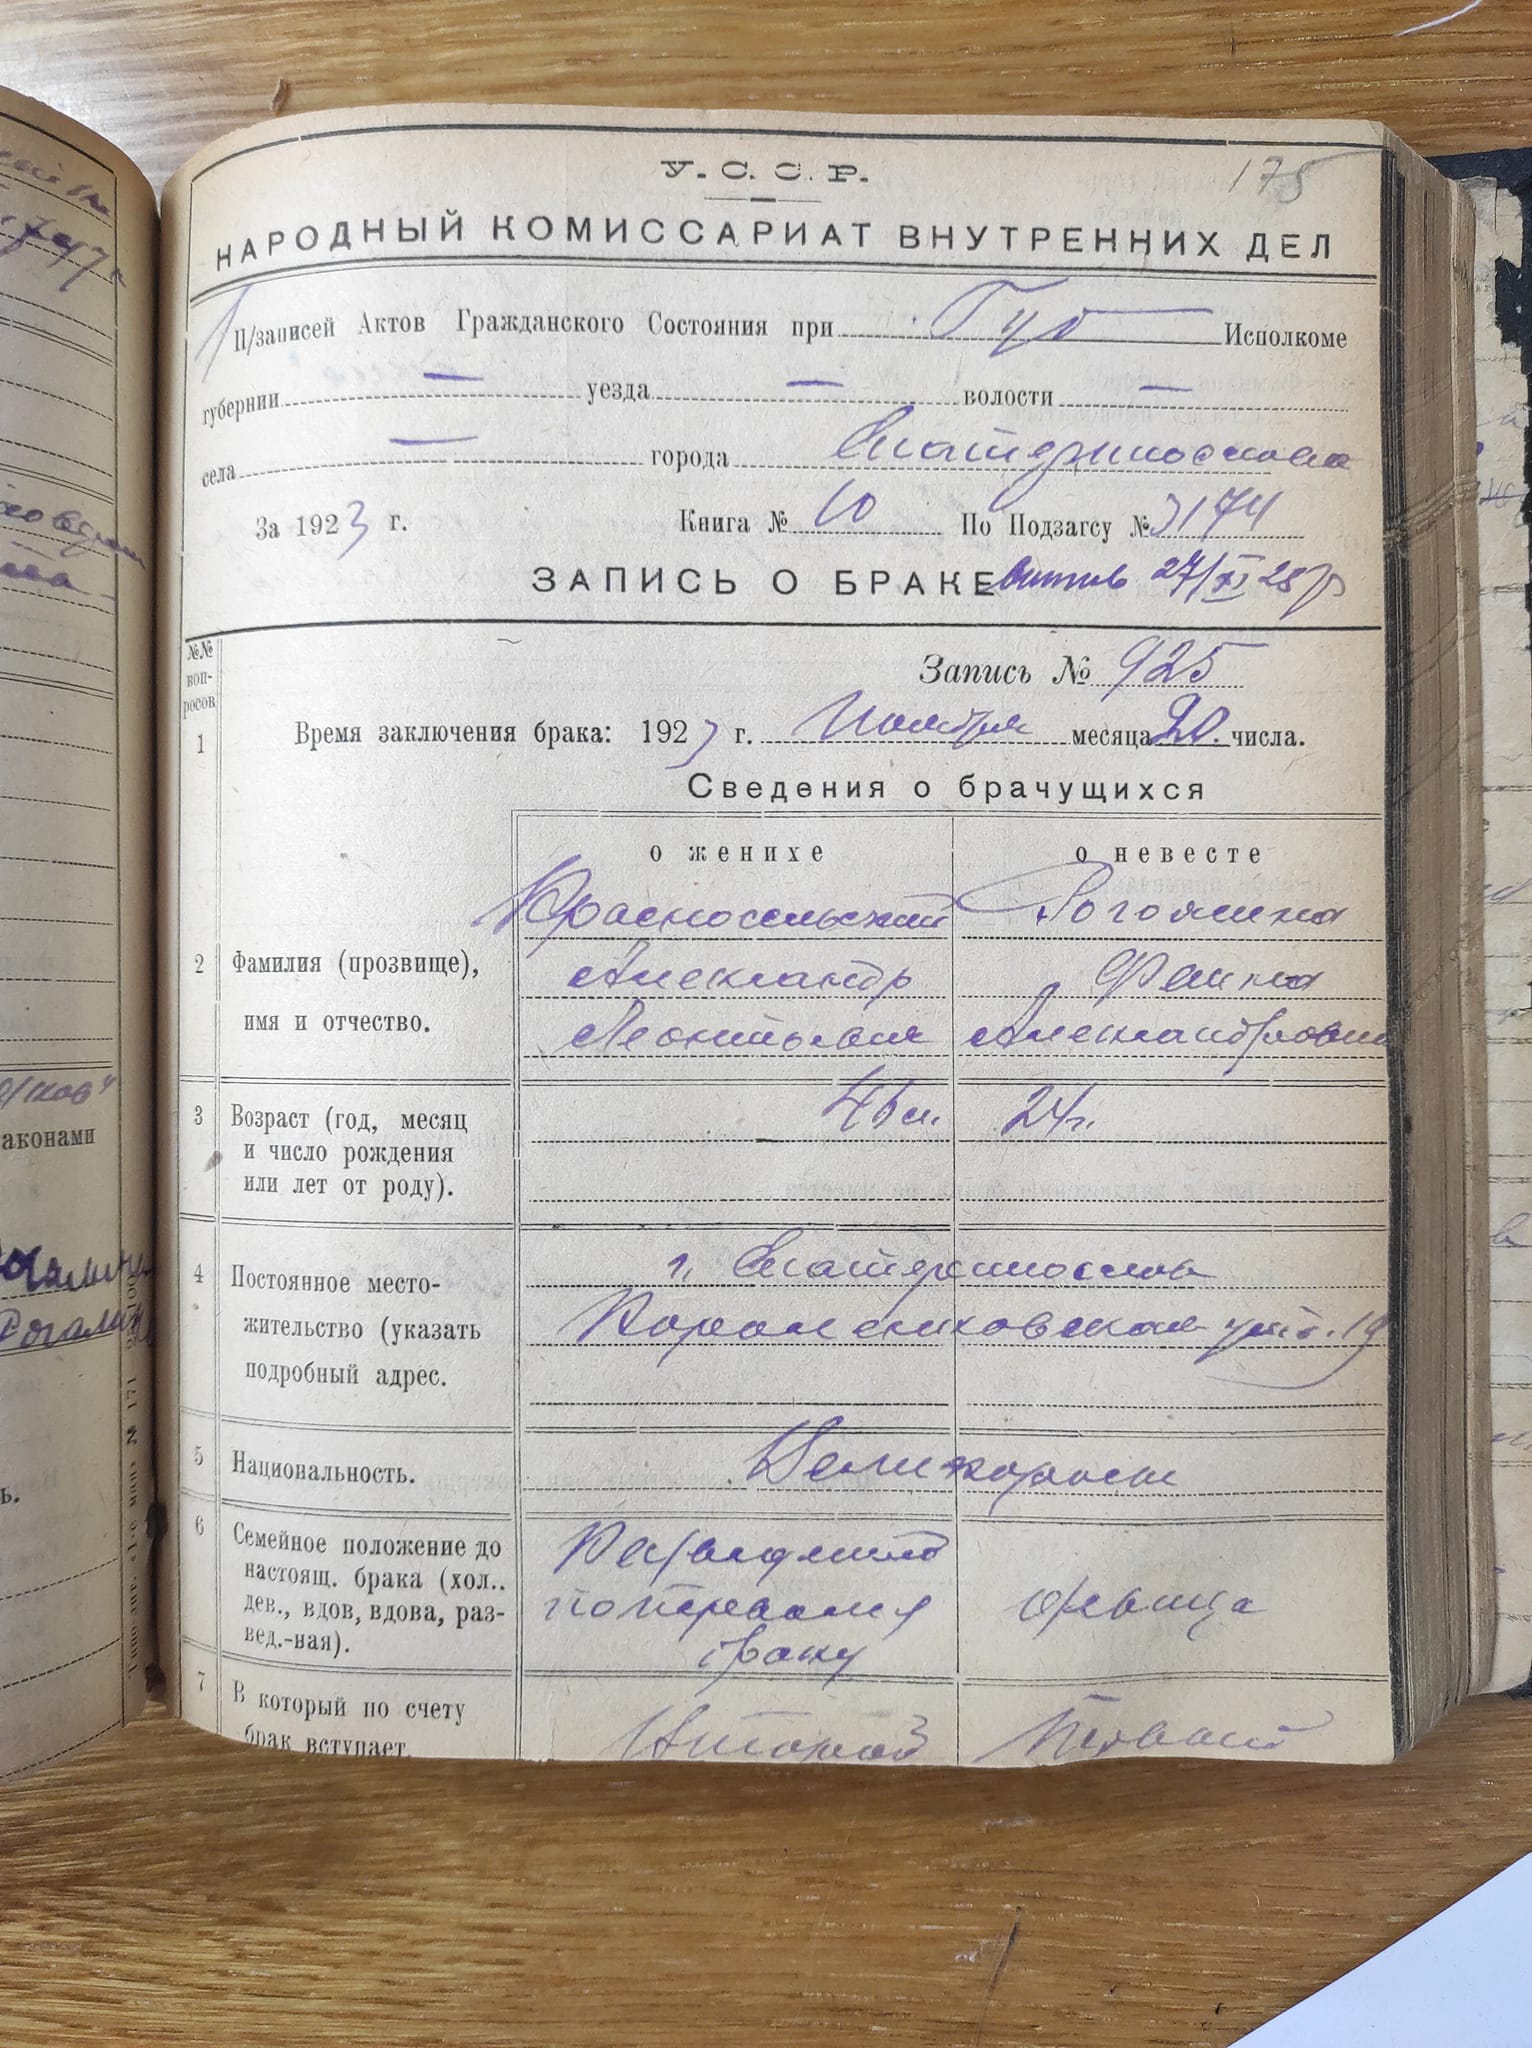 175
У.С.С.Р.
НАРОДНЫЙ КОМИССАРИАТ ВНУТРЕННИХ ДЕЛ
П/записей Актов Гражданского Состояния при Губ Исполкоме
губернии — уезда — волости —
села — города Екатеринослава
За 1923 г. Книга № 10 По Подзагсу № 3174
ЗАПИСЬ О БРАКЕ 27/XI
№№ воп-росов
Запись № 925
1 Время заключения брака: 1923 г. Ноября месяца 20. числа.
Сведения о брачущихся
о женихе о невесте
Красносельский
2 Фамилия (прозвище), Александр Фаина
имя и отчество. Леонтьевич Александровна
3 Возраст (год, месяц 46 л. 24 г.
и число рождения
или лет от роду).
4 Постоянное место- г. Екатеринослав
жительство (указать 19
подробный адрес.
5 Национальность. Великоросы
6 Семейное положение до Разведенный
настоящ. брака (хол..
дев., вдов, вдова, раз- по первому девица
вед.-ная). браку
7 В который по счету Второй Первый
брак вступает.
аконами
ь.